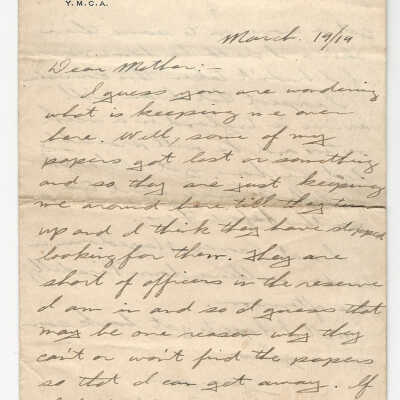 Y.M.C.A.
March. 19/19
Dear Mother:-
I guess you are wondering
what is keeping me over
here. Well, some of my
papers got lost or something
and so they are just keeping
me around here till they turn
up and I think they have stopped
looking for them. They are
short of officers in the reserve
I am in and so I guess that
may be one reason why they
can't or won't find the papers
so that I can get away. If